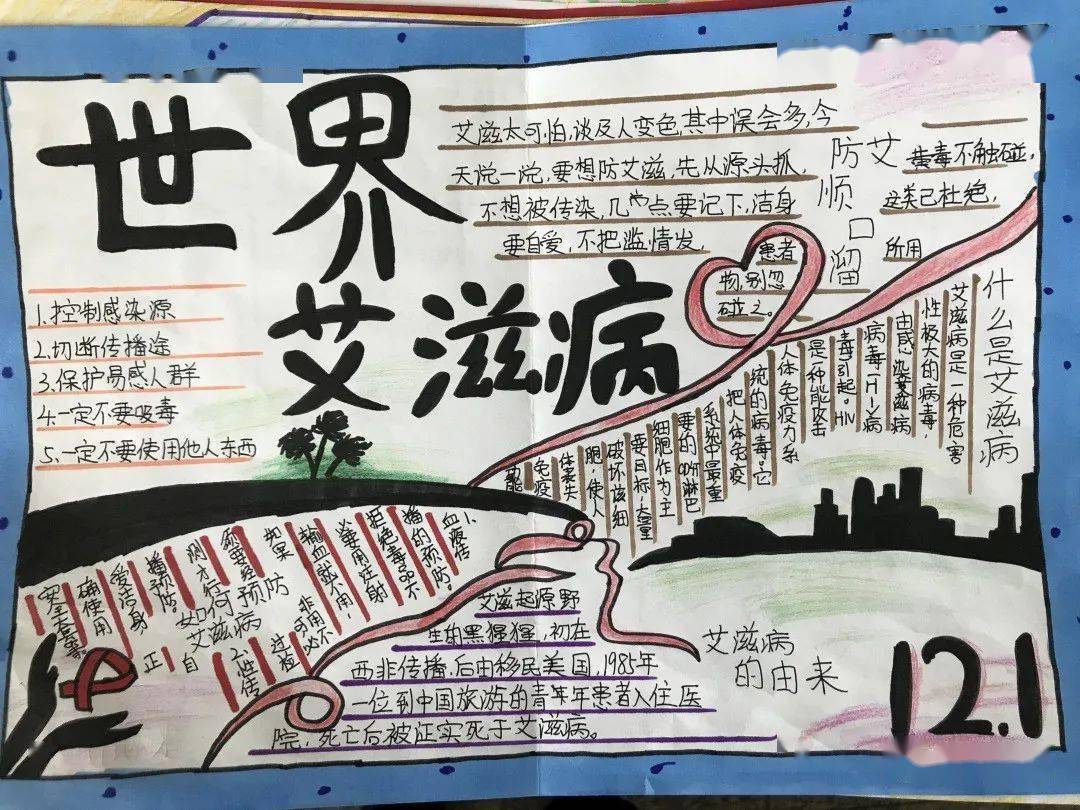 世界
艾滋病
1.控制感染源
2.切断传播途
3.保护易感人群
4.一定不要吸毒
5.一定不要使用他人东西
艾滋太可怕,谈及人变色,其中误会多,今
天说一说,要想防艾滋,先从源头抓,
不想被传染,几点要记下,洁身
要自爱,不把滥情发,
黄毒不触碰,
这类已杜绝,
所用
患者
物,别忽
碰之。
防艾
顺
口
溜
什么是艾滋病
艾滋病是一种危害
性极大的病毒,
由感染艾滋病
病毒HIV病
毒引起。HIV
是一种能攻击
人体免疫力系
统的病毒。它
把人体免疫
系统中最重
要的CD4T淋巴
细胞作为主
要目标,大量
破坏该细
胞,使人
体丧失
免疫
能
如何预防
艾滋病
1.血液传
播的预防。
拒绝毒品不
必要用注射
输血就不用,
非用不
可时必
如果
须要经
过检
测才行
2.性传
播预防。
爱洁身
自
正
确使用
安全套等
艾滋起源野
生的黑猩猩,初在
西非传播,后由移民美国,1985年
一位到中国旅游的青年患者入住医
院,死亡后被证实死于艾滋病。
艾滋病
的由来
12.1